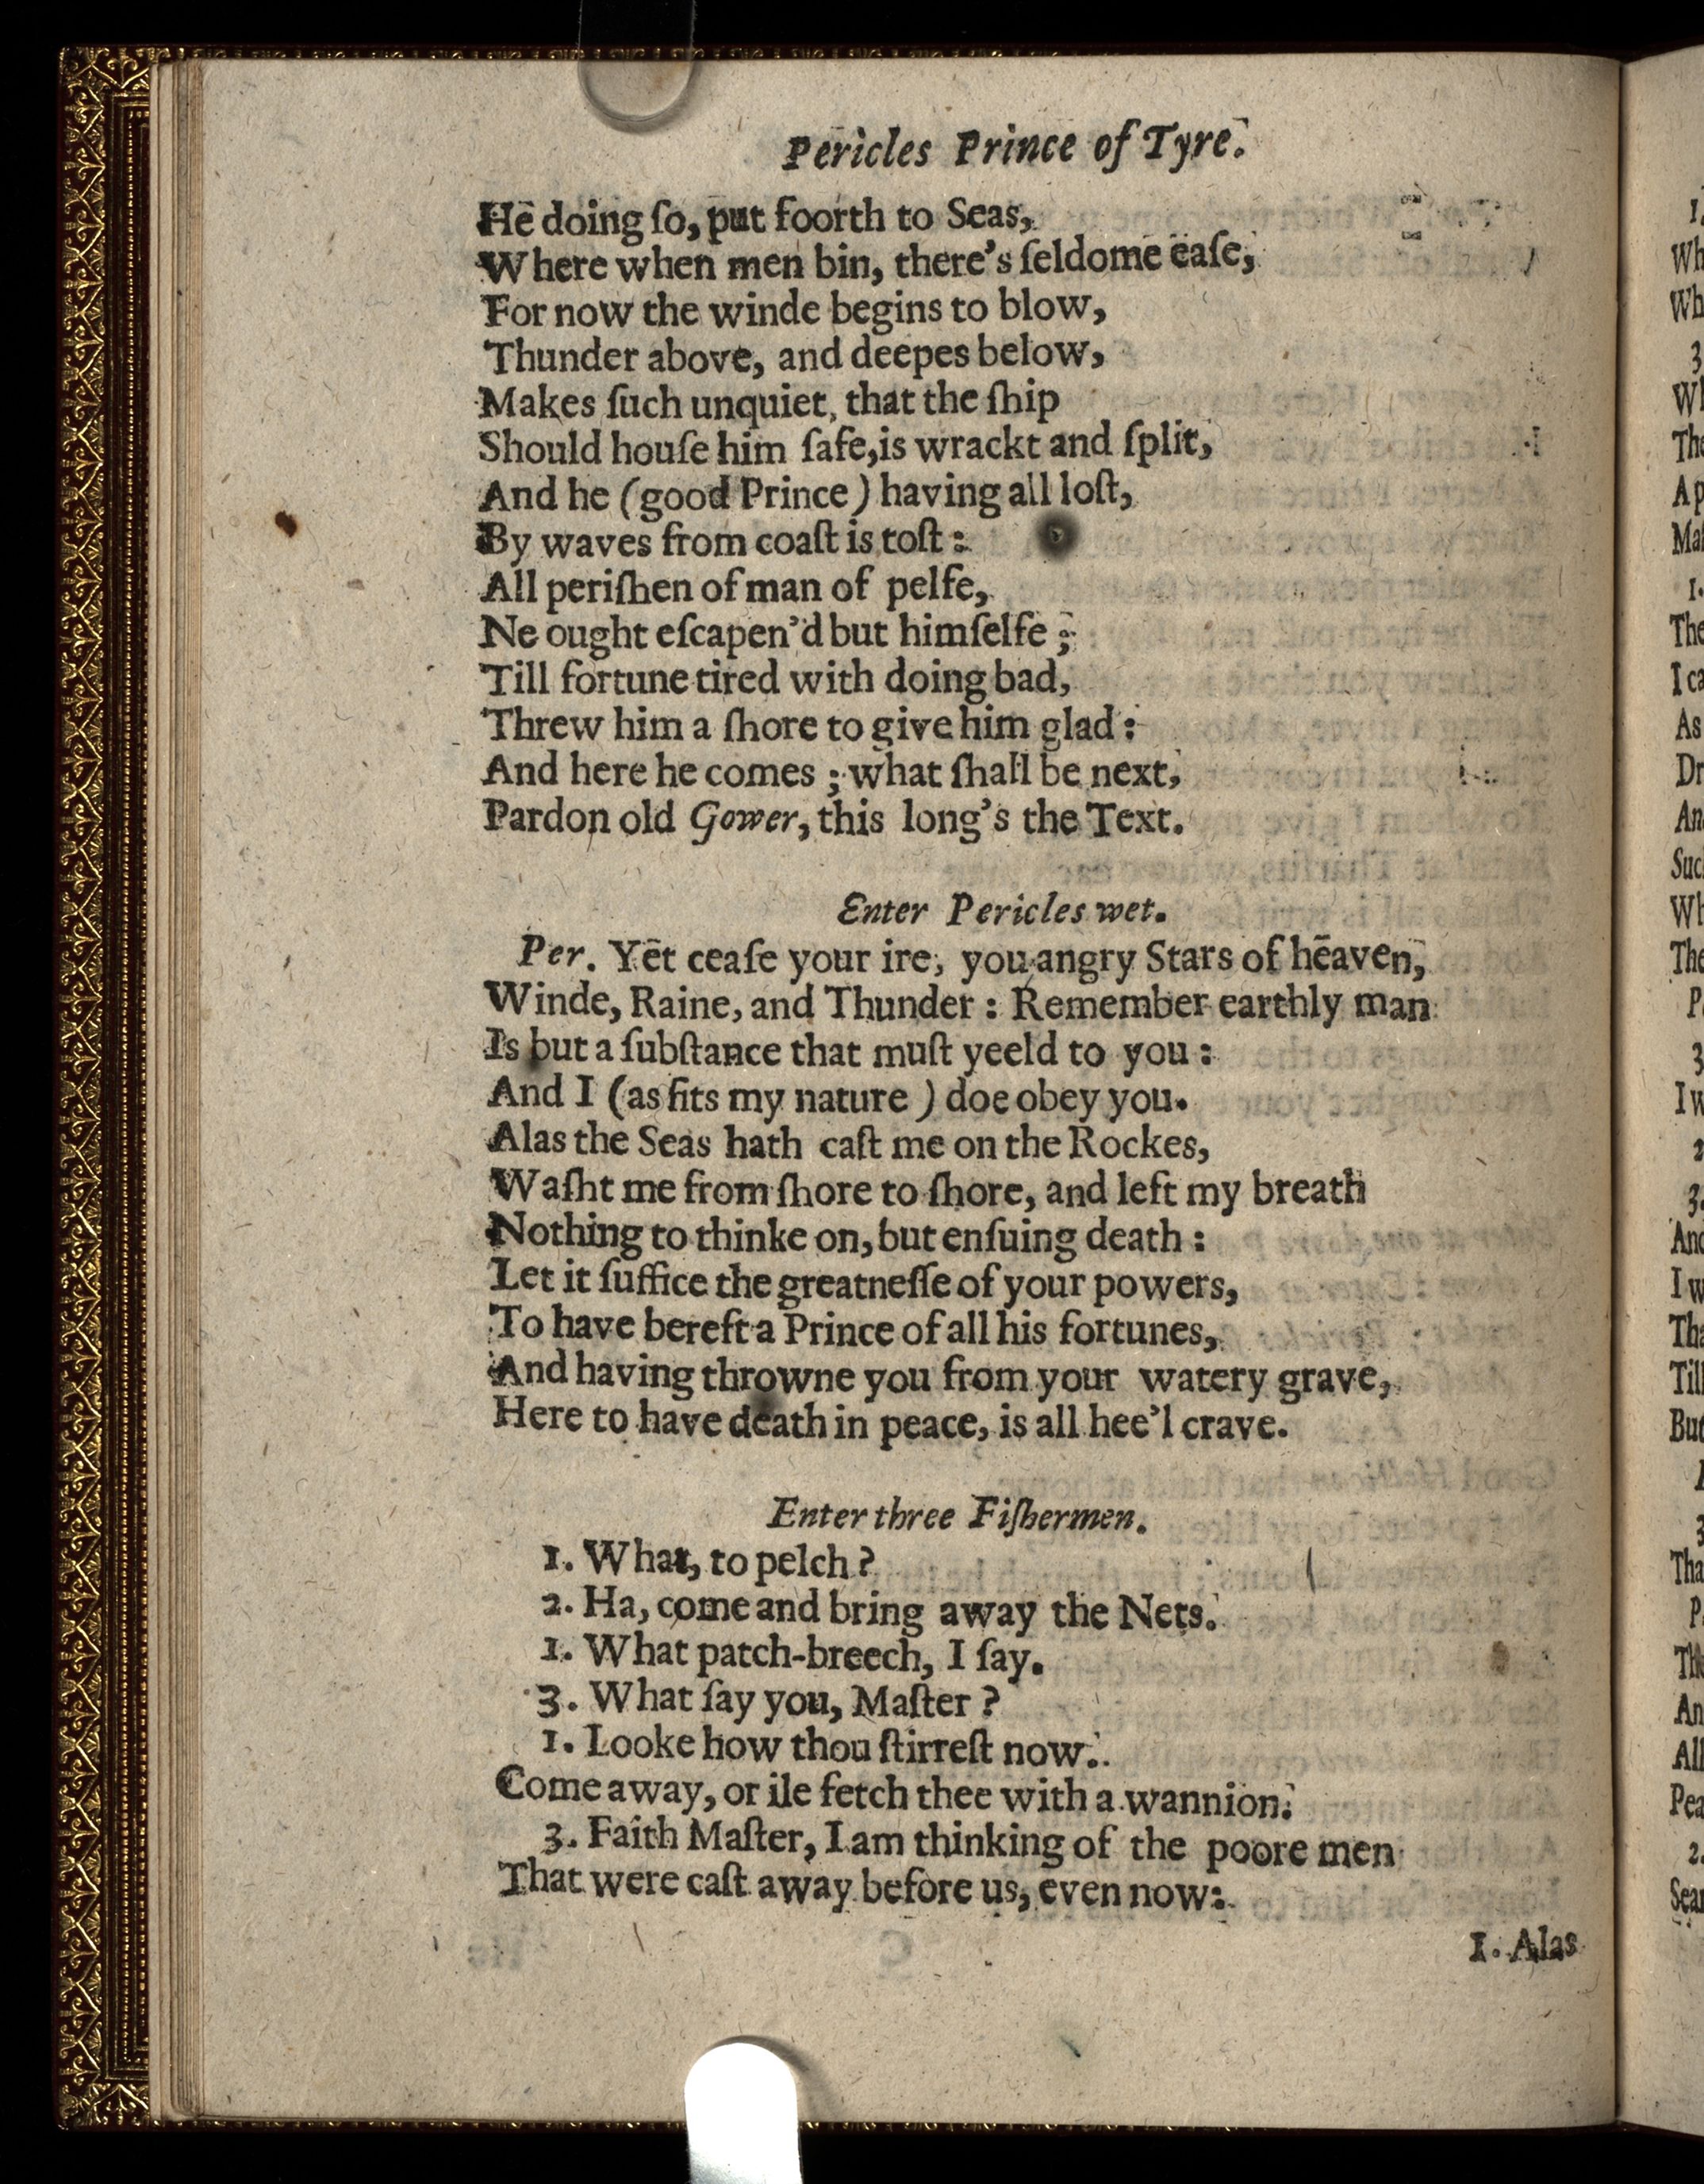 Pericles Prince of Tyre.
He doing ſo, put foorth to Seas,
Where when men bin, there's ſeldome eaſe,
For now the winde begins to blow,
Thunder above, and deepes below,
Makes ſuch unquiet, that the ſhip
Should houſe him ſafe, is wrackt and ſplit,
And he (good Prince) having all loſt,
By waves from coaſt is toſt:
All periſhen of man of pelfe,
Ne ought eſcapen'd but himſelfe;
Till fortune tired with doing bad,
Threw him a ſhore to give him glad:
And here he comes; what ſhall be next,
Pardon old Gower, this long's the Text.
Enter Pericles wet.
Per. Yet ceaſe your ire, you angry Stars of heaven,
Winde, Raine, and Thunder: Remember earthly man
Is but a ſubſtance that muſt yeeld to you:
And I (as fits my nature) doe obey you.
Alas the Seas hath caſt me on the Rockes,
Waſht me from ſhore to ſhore, and left my breath
Nothing to thinke on, but enſuing death:
Let it ſuffice the greatneſſe of your powers,
To have bereft a Prince of all his fortunes,
And having throwne you from your watery grave,
Here to have death in peace, is all hee'l crave.
Enter three Fiſhermen.
1. What, to pelch?
2. Ha, come and bring away the Nets.
1. What patch-breech, I ſay.
3. What ſay you, Maſter?
1. Looke how thou ſtirreſt now.
Come away, or ile fetch thee with a wannion.
3. Faith Maſter, I am thinking of the poore men
That were caſt away before us, even now:
1. Alas